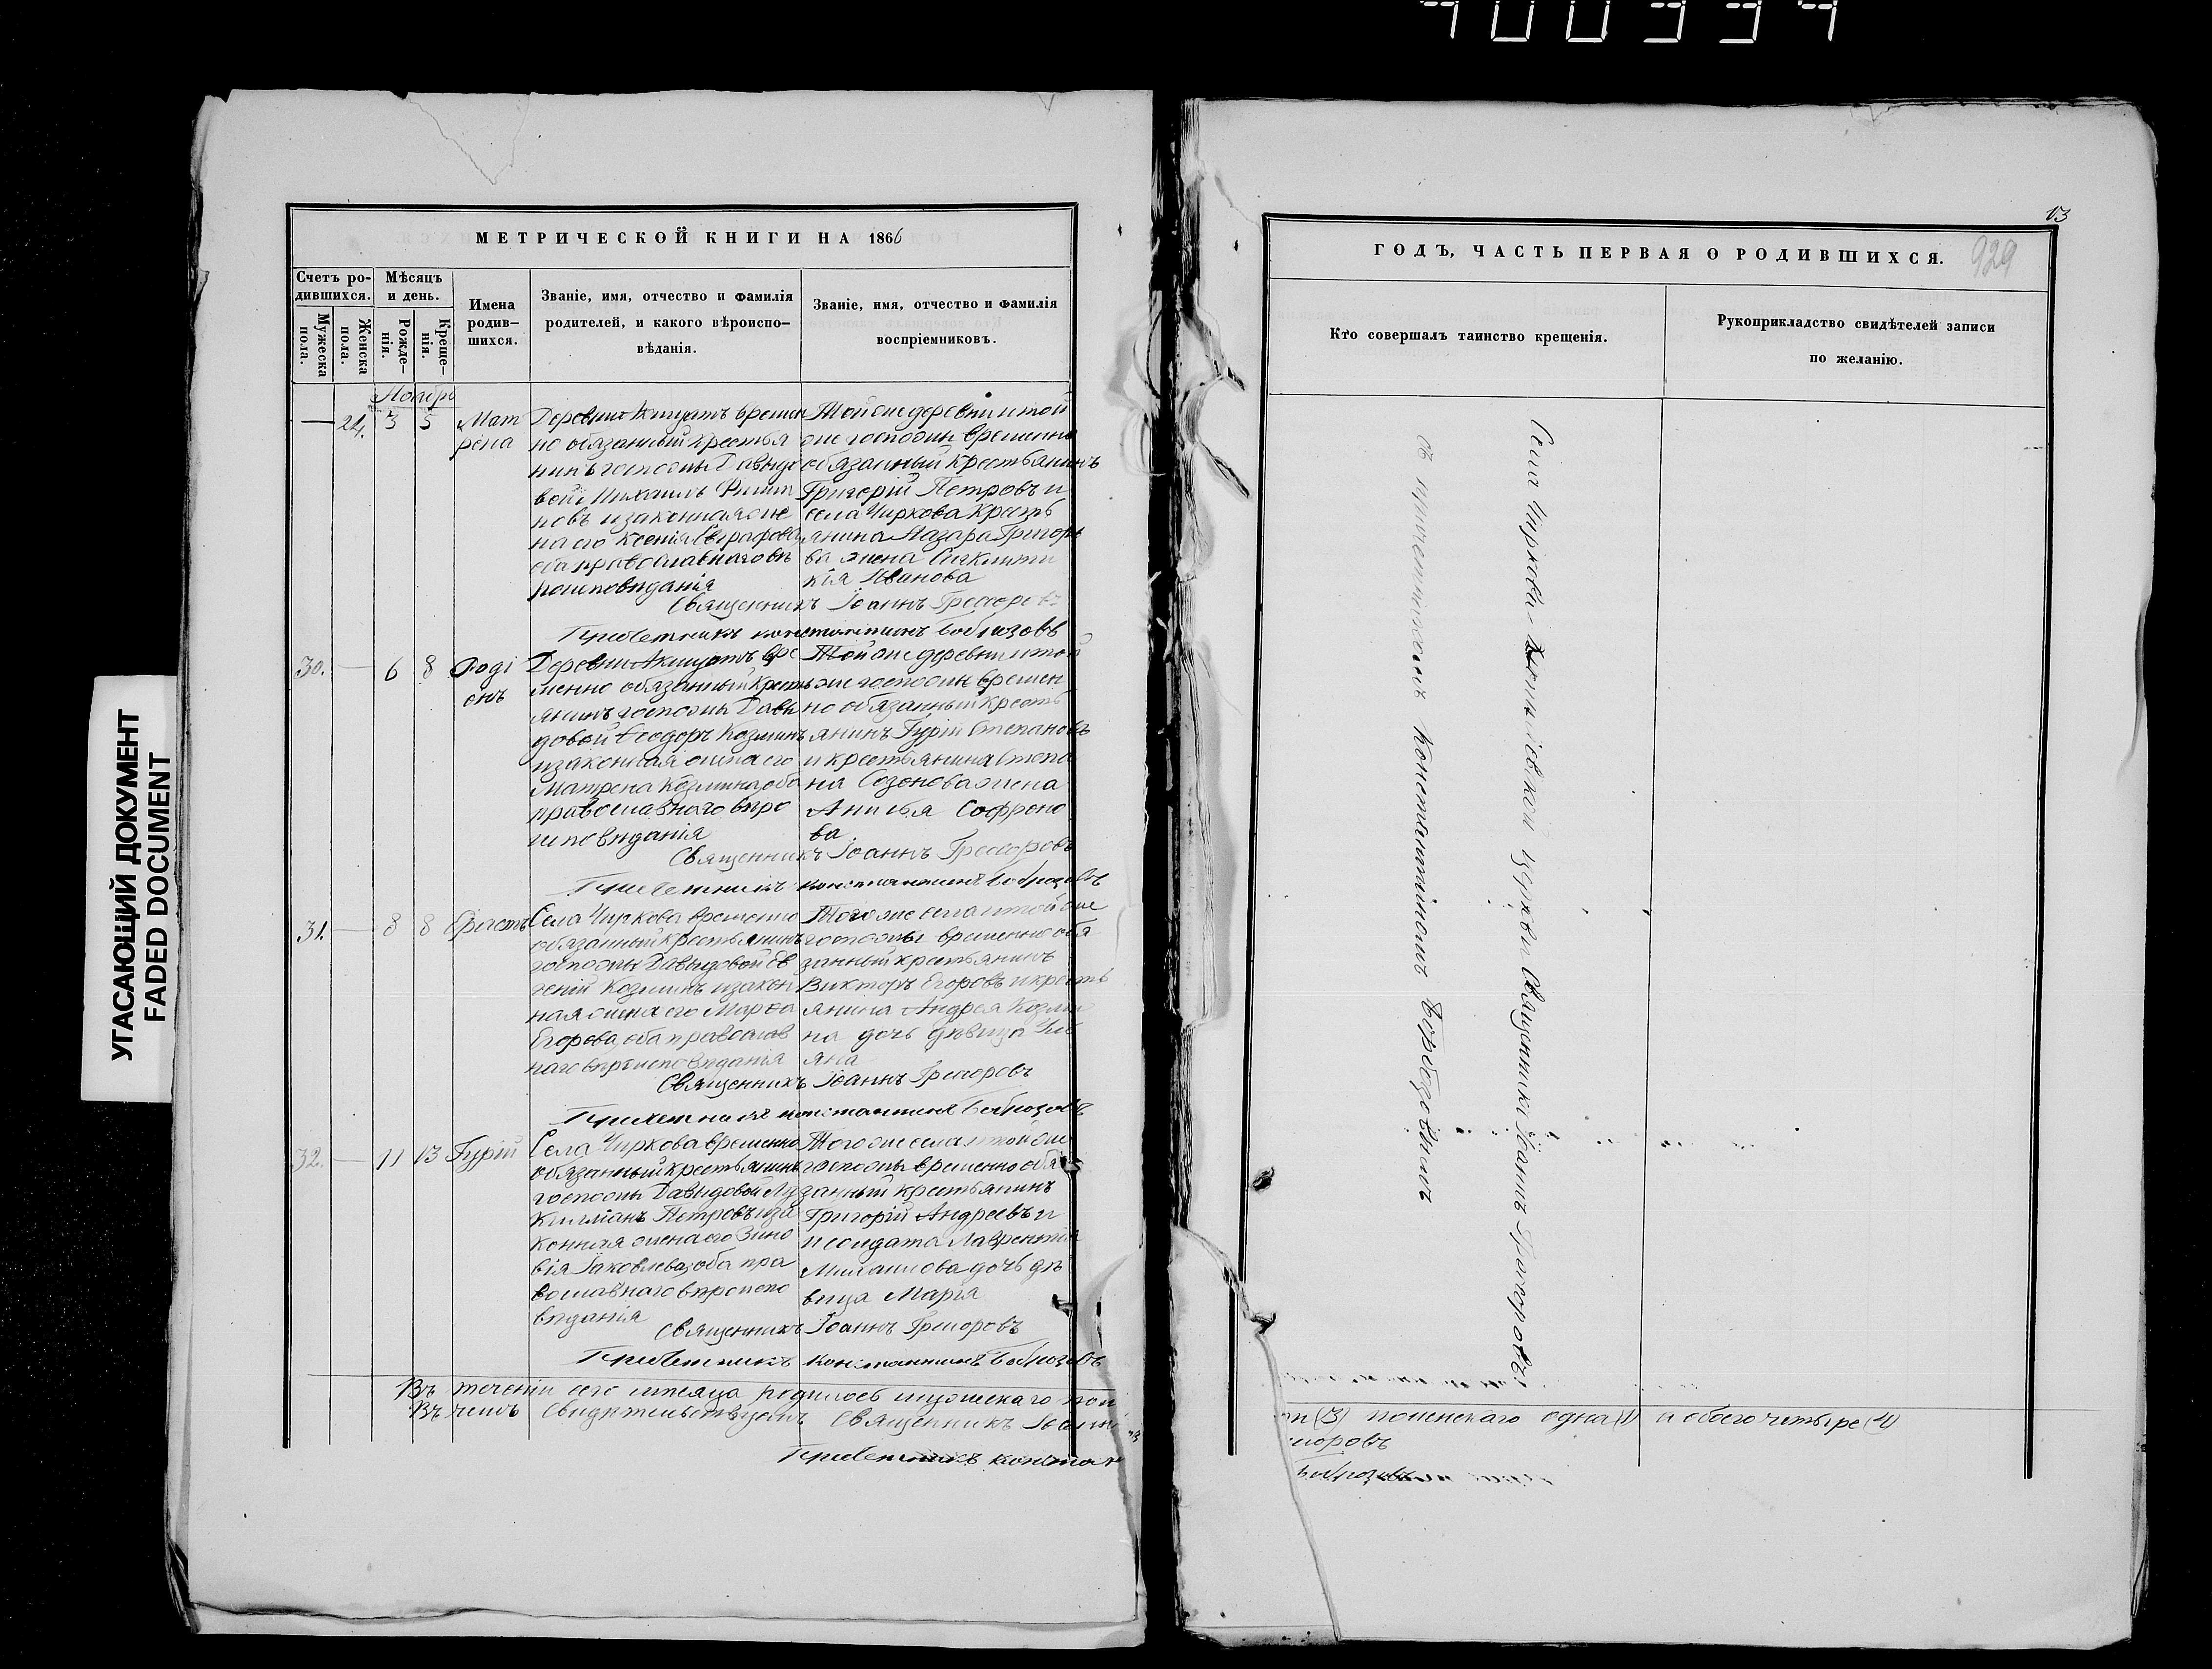 400334
УГАСАЮЩИЙ ДОКУМЕНТ
FADED DOCUMENT
МЕТРИЧЕСКОЙ КНИГИ НА 1866
Счетъ ро-
дившихся.
Мужеска
пола.
Женска
пола.
Мѣсяцъ
и день.
Рожде-
нія.
Креще-
нія.
Имена
родив-
шихся.
Званіе, имя, отчество и фамилія
родителей, и какого вѣроиспо-
вѣданія.
Званіе, имя, отчество и фамилія
воспріемниковъ.
Ноябрь
— 24. 3 5
Мат
рена
Деревни времен
но обязанный крестья
нинъ госпожи Давыдо
вой Михаилъ Филип
повъ и законная же
на его Ксенія Евграфова
оба православнаго вѣ
роисповѣданія
Той же деревни и той
же госпожи временно
обязанный крестьянинъ
Григорій Петровъ и
села Чиркова кресть
янина Лазаря Григорь
ва жена Синклити
кія Иванова
Священникъ Іоаннъ
Причетникъ Константинъ
30. — 6 8
Роді
онъ
Деревни вре
менно обязанный кресть
янинъ госпожи Давы
довой Ѳеодоръ Козминъ
и законная жена его
Матрена Козмина, оба
православнаго вѣро
исповѣданія
Той же деревни и той
же госпожи времен
но обязанный кресть
янинъ Гурій Степановъ
и крестьянина Степа
на Созонова жена
Анисья Софроно
ва
Священникъ Іоаннъ
Причетникъ Константинъ
31. — 8 8
Ерастъ
Села Чиркова временно
обязанный крестьянинъ
госпожи Давыдовой Ев
геній Козминъ и закон
ная жена его Марѳа
Егорова, оба православ
наго вѣроисповѣданія
Того же села и той же
госпожи временно обя
занный крестьянинъ
Викторъ Егоровъ и кресть
янина Андрея Козми
на дочь дѣвица Ули
яна
Священникъ Іоаннъ
Причетникъ Константинъ
32. — 11 13
Гурій
Села Чиркова временно
обязанный крестьянинъ
госпожи Давыдовой Лу
килліанъ Петровъ и за
конная жена его Зино
вія Іаковлева, оба пра
вославнаго вѣроиспо
вѣданія
Того же села и той же
госпожи временно обя
занный крестьянинъ
Григорій Андреевъ и
и солдата Лаврентія
Михаилова дочь дѣ
вица Марія
Священникъ Іоаннъ
Причетникъ Константинъ
Въ теченіи сего мѣсяца родилось мужескаго пол
Въ чемъ свидѣтельствуемъ Священникъ Іоаннъ
Причетникъ Констан
13
929
ГОДЪ, ЧАСТЬ ПЕРВАЯ О РОДИВШИХСЯ.
Кто совершалъ таинство крещенія.
Рукоприкладство свидѣтелей записи
по желанію.
Села Чиркова церкви Священникъ Іоаннъ
съ причетникомъ Константиномъ
(3) женскаго одна (1) и обоего четыре (4)